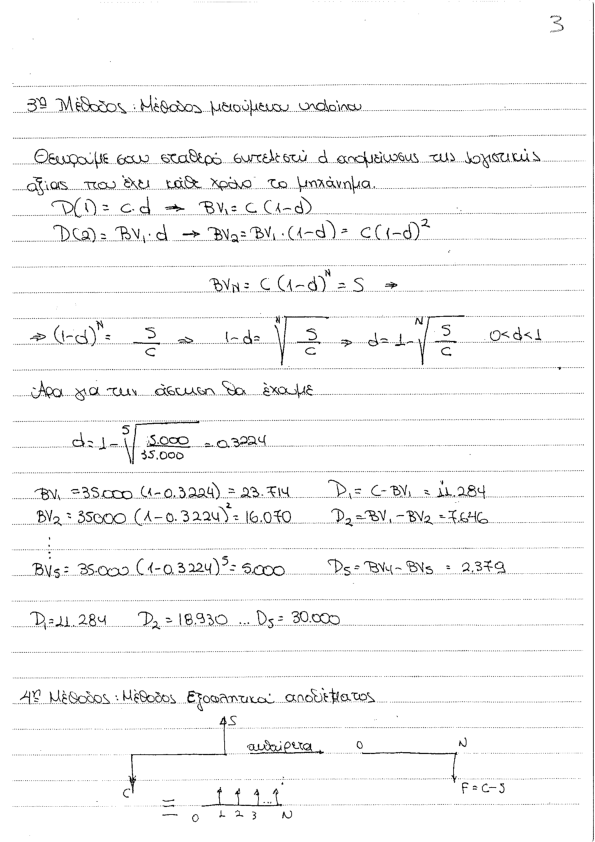 3
3η Μέθοδος: Μέθοδος μειούμενου υπολοίπου
Θεωρούμε σαν σταθερό συντελεστή d απομείωσης της λογιστικής
αξίας που έχει κάθε χρόνο το μηχάνημα.
D(1) = C·d → BV₁ = C(1-d)
D(2) = BV₁·d → BV₂ = BV₁·(1-d) = C(1-d)²
BV_N = C(1-d)^N = S ⇒
⇒ (1-d)^N = S/C ⇒ 1-d = ᴺ√(S/C) ⇒ d = 1-ᴺ√(S/C) 0<d<1
Άρα για την άσκηση θα έχουμε
d = 1-⁵√(5.000/35.000) = 0.3224
BV₁ = 35.000 (1-0.3224) = 23.714 D₁ = C-BV₁ = 11.284
BV₂ = 35000 (1-0.3224)² = 16.070 D₂ = BV₁-BV₂ = 7.646
⋮
BV₅ = 35.000 (1-0.3224)⁵ = 5.000 D₅ = BV₄-BV₅ = 2.379
D₁ = 11.284 D₂ = 18.930 ... D₅ = 30.000
4η Μέθοδος: Μέθοδος Εξοφλητικού αποθέματος
S
αυθαίρετα 0 N
C F = C-S
= 0 1 2 3 ... N